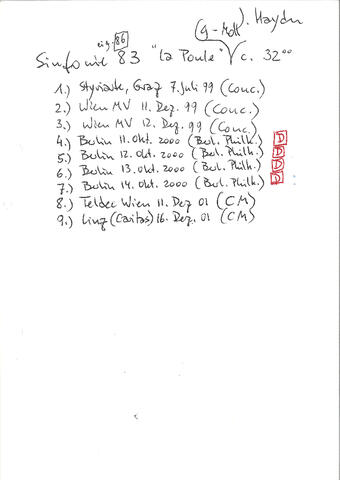 (g-Moll). Haydn
eig. 86
Sinfonie 83 "La Poule" √ c. 32°°
1.) Styriarte, Graz 7. Juli 99 (Conc.)
2.) Wien MV 11. Dez. 99 (Conc.)
3.) Wien MV 12. Dez. 99 (Conc.)
4.) Berlin 11. Okt. 2000 (Berl. Philh.) D
5.) Berlin 12. Okt. 2000 (Berl. Philh.) D
6.) Berlin 13. Okt. 2000 (Berl. Philh.) D
7.) Berlin 14. Okt. 2000 (Berl. Philh.) D
8.) Teldec Wien 11. Dez 01 (CM)
9.) Linz (Caritas) 16. Dez. 01 (CM)